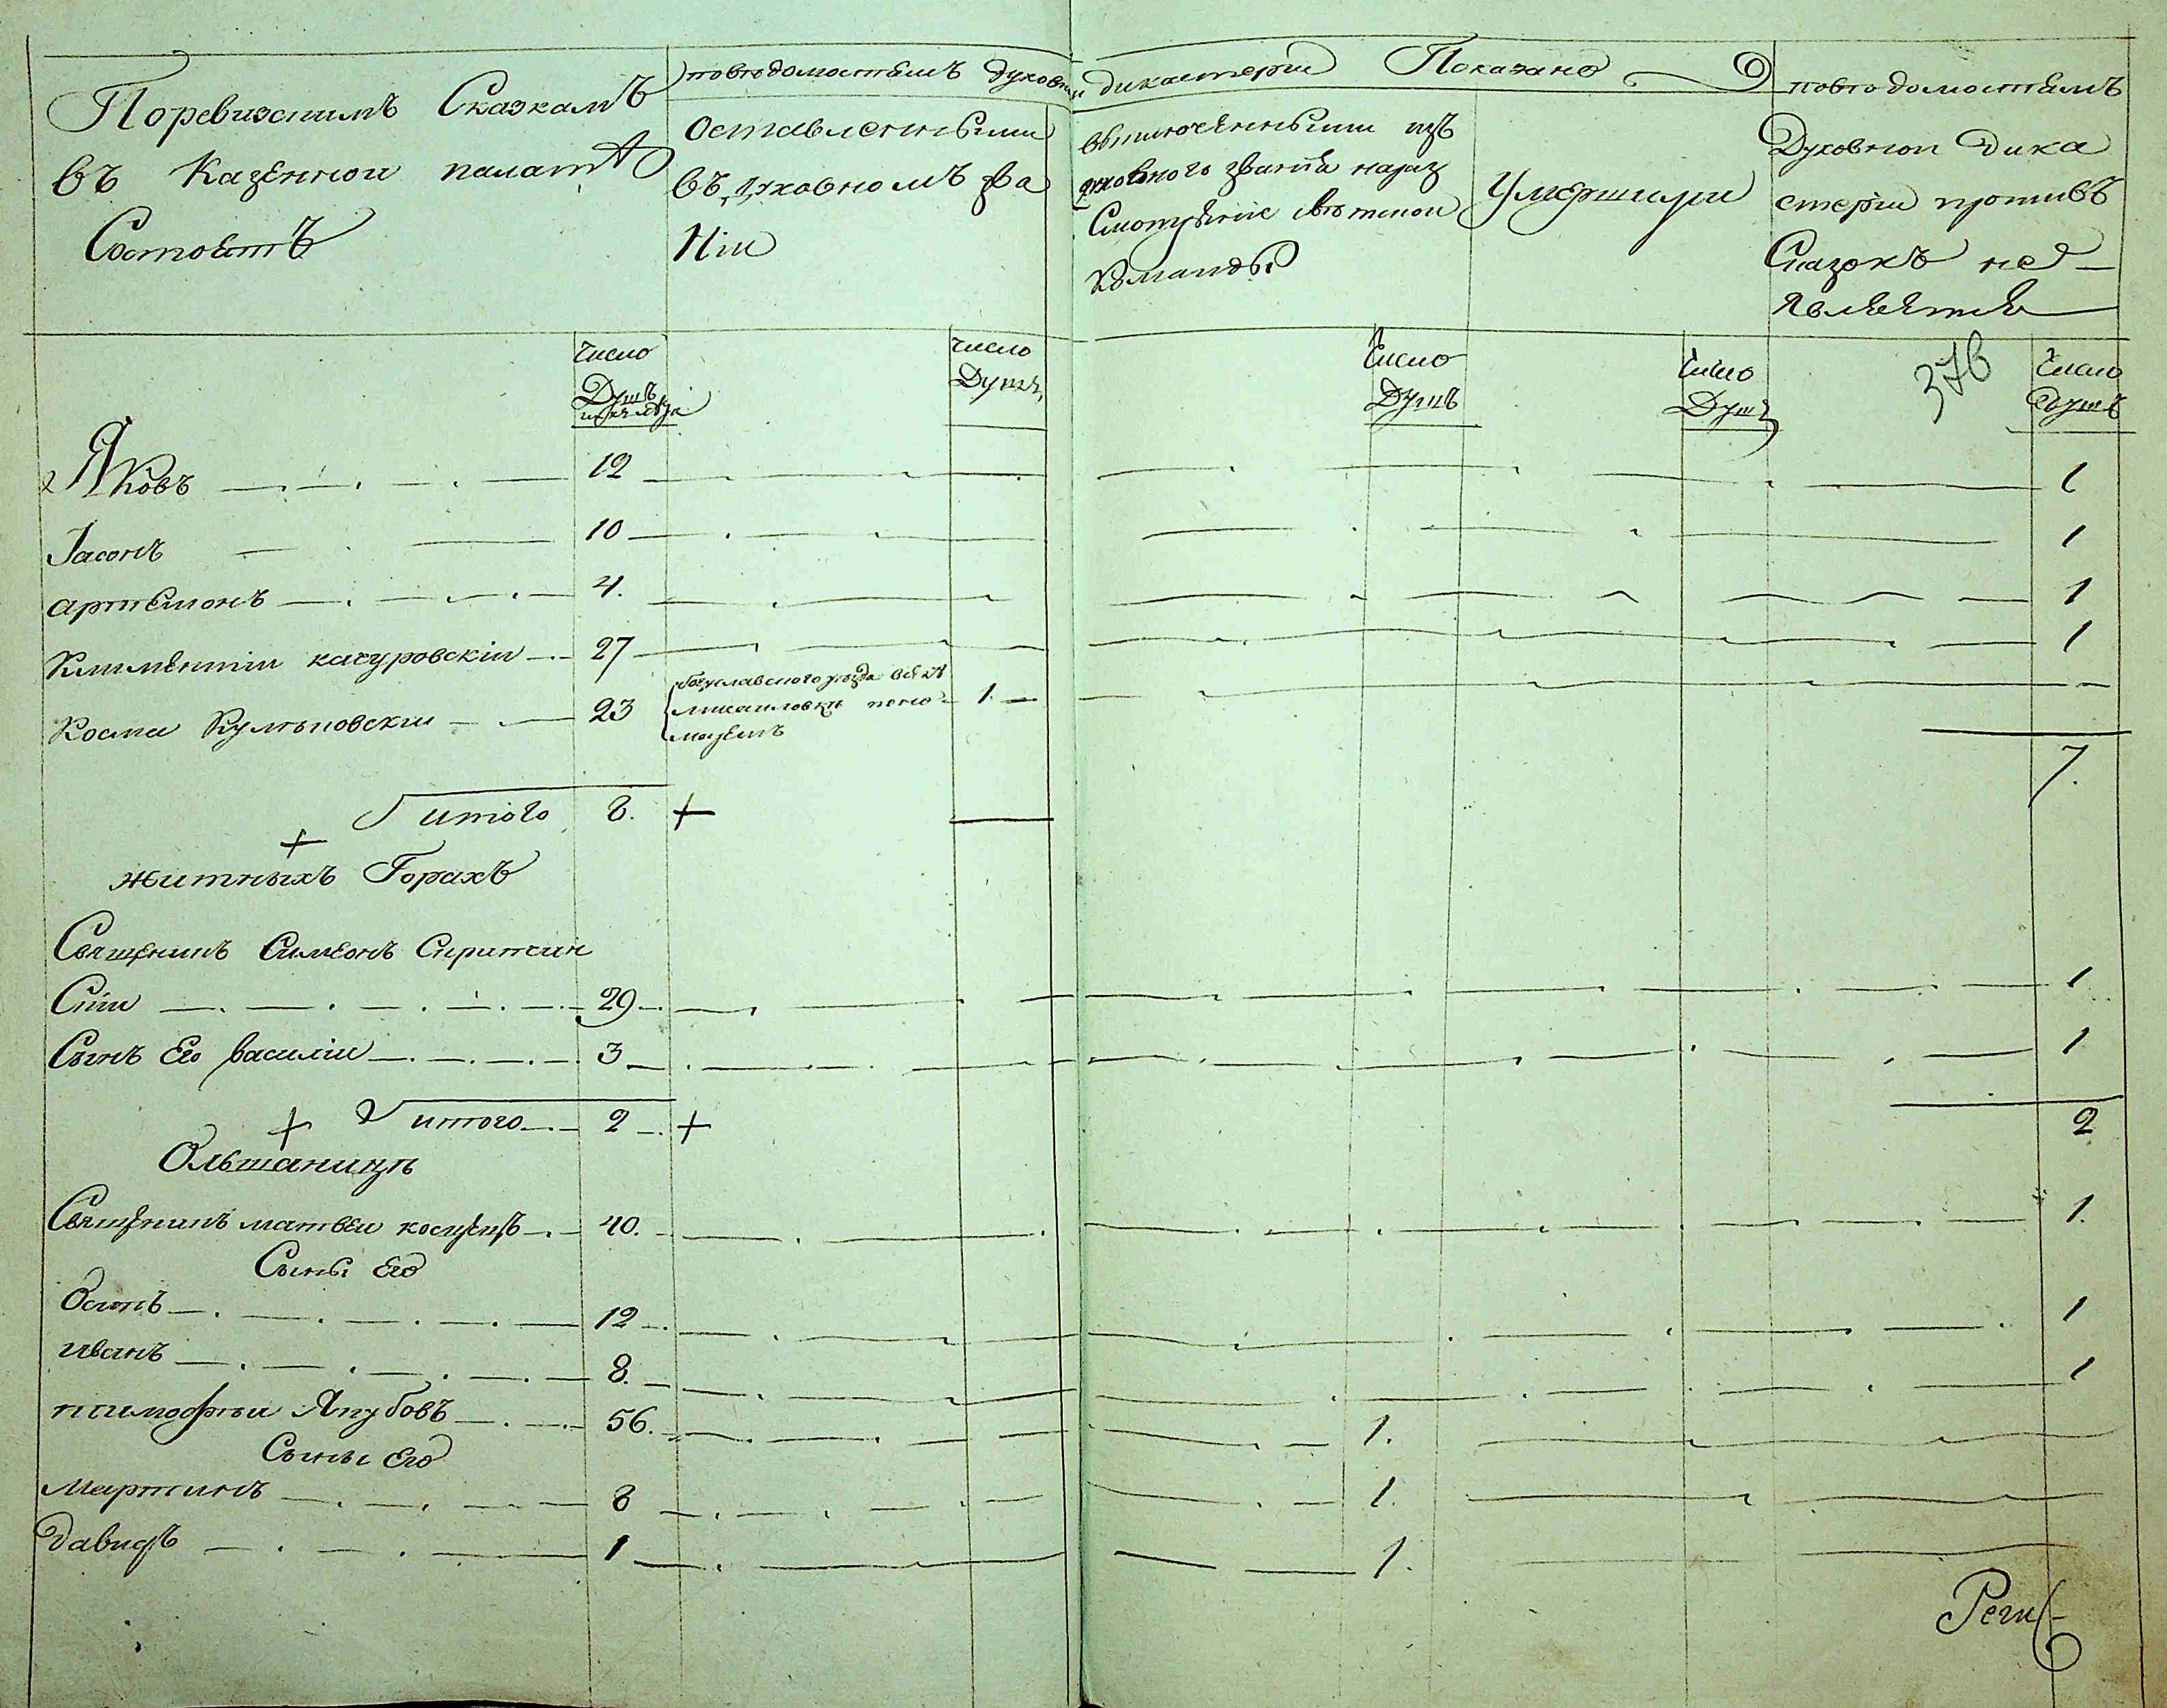 Поревизскимъ Сказкамъ
въ Казенной палатѣ
Состоитъ
повѣдомостямъ духовной дикастерии Показано
Оставленными
въ духовномъ зва
нии
выключенными изъ
духовного звания на раз
Смотрѣние свѣтской
Команды
Умершими
повѣдомостямъ
Духовной Дика
стерии противъ
Сказокъ не
является
Число
Душъ
Число
Душъ
Число
Душъ
Число
Душъ
376
Число
Душъ
Яковъ 12 1
Іасонъ 10 1
артемонъ 4. 1
Климентии качуровскии 27 1
Косма Кулчъповскии 23
богуславского уезда въ селѣ
михаиловки
1.
7.
итого 8. +
+
житныхъ Горахъ
Священникъ Симеонъ
Скии 29 1
Сынъ Его василии 3 1
+ итого 2 + 2
Ольшаницѣ
Священникъ матвеи 40. 1.
Сыны Его
Осипъ 12 1
иванъ 8. 1
тимофѣи Якубовъ 56. 1.
Сыны Его
мартинъ 8 1.
давидъ 1 1.